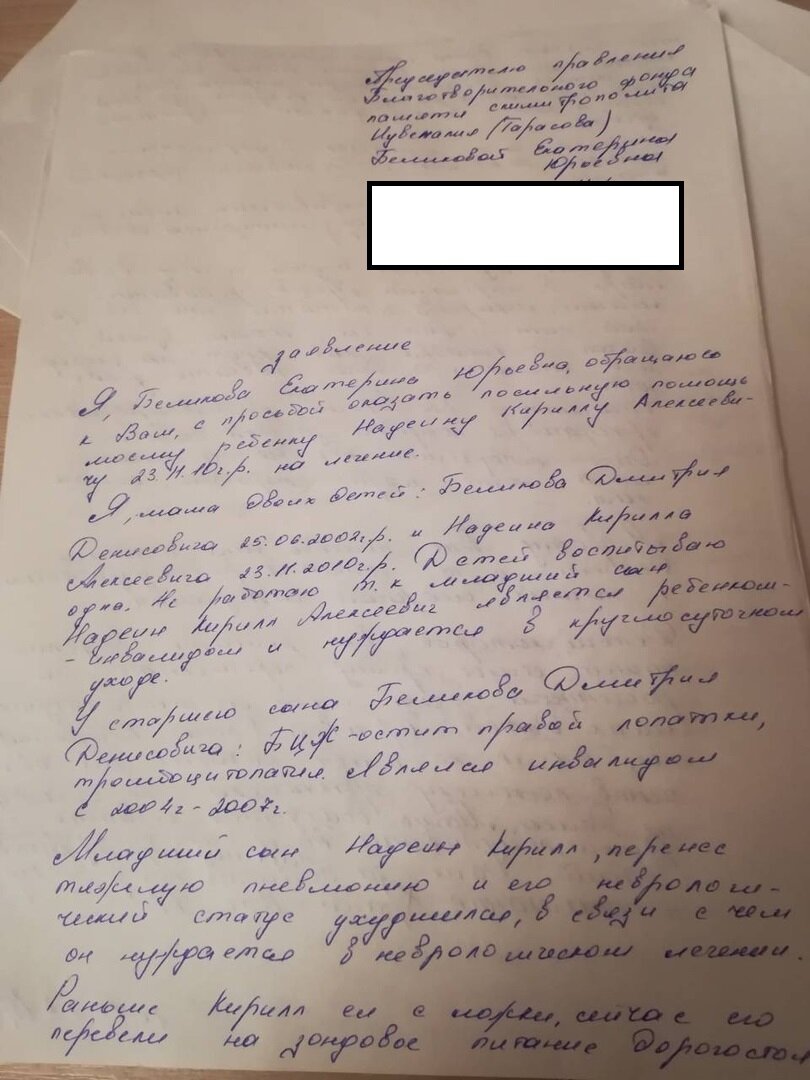 Председателю правления
Благотворительного фонда
памяти схимитрополита
Иувеналия (Тарасова)
Беликовой Екатерина
Юрьевна
заявление
Я, Беликова Екатерина Юрьевна, обращаюсь
к Вам, с просьбой оказать посильную помощь
моему ребенку Надеину Кириллу Алексееви-
чу 23.11.10г.р. на лечение.
Я, мама двоих детей: Беликова Дмитрия
Денисовича 25.06.2002г.р. и Надеина Кирилла
Алексеевича 23.11.2010г.р. Детей воспитываю
одна. Не работаю т.к младший сын
Надеин Кирилл Алексеевич является ребенком-
-инвалидом и нуждается в круглосуточном
уходе.
У старшего сына Беликова Дмитрия
Денисовича: БЦЖ-остит правой лопатки,
тромбоцитопатия. Являлся инвалидом
с 2004г-2007г.
Младший сын Надеин Кирилл, перенес
тяжелую пневмонию и его неврологи-
ческий статус ухудшился, в связи с чем
он нуждается в неврологическом лечении.
Раньше Кирилл ел с ложки, сейчас его
перевели на зондовое питание дорогостоя